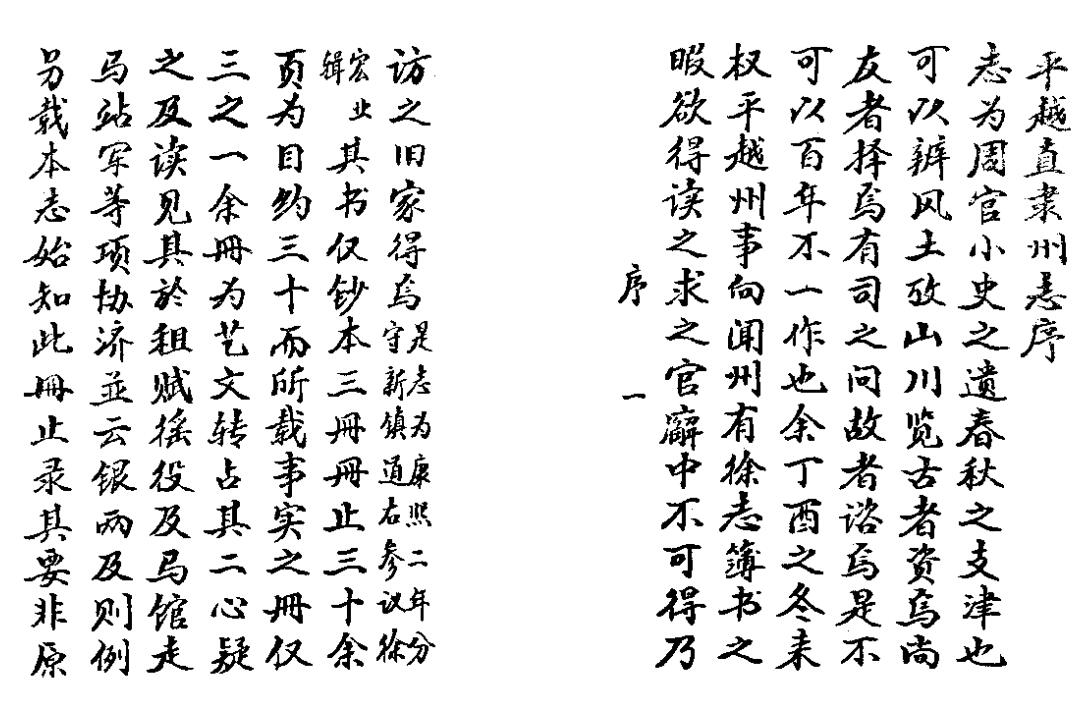 平越直隶州志序
志为周官小史之遗春秋之支津也
可以辨风土攷山川览古者资焉尚
友者择焉有司之问故者谘焉是不
可以百年不一作也余丁酉之冬来
权平越州事向闻州有徐志簿书之
暇欲得读之求之官廨中不可得乃
序 一
访之旧家得焉是志为康熙二年分守新镇道右参议徐
宏业辑其书仅钞本三册册止三十余
页为目约三十而所载事实之册仅
三之一余册为艺文转占其二心疑
之及读见其於租赋徭役及马馆走
马站军等项协济並云银两及则例
另载本志始知此册止录其要非原